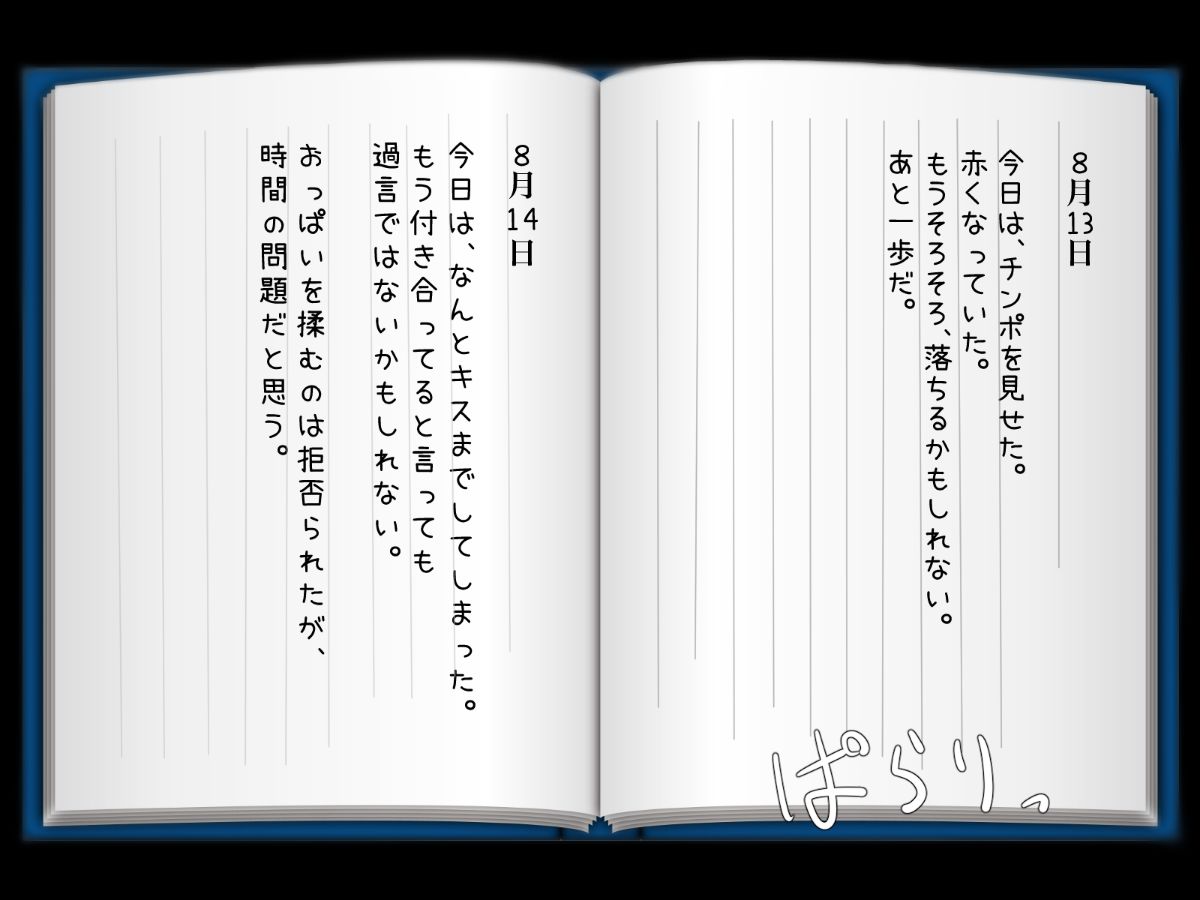 8月13日
今日は、チンポを見せた。
赤くなっていた。
もうそろそろ、落ちるかもしれない。
あと一歩だ。
ぱらりっ
8月14日
今日は、なんとキスまでしてしまった。
もう付き合ってると言っても
過言ではないかもしれない。
おっぱいを揉むのは拒否られたが、
時間の問題だと思う。